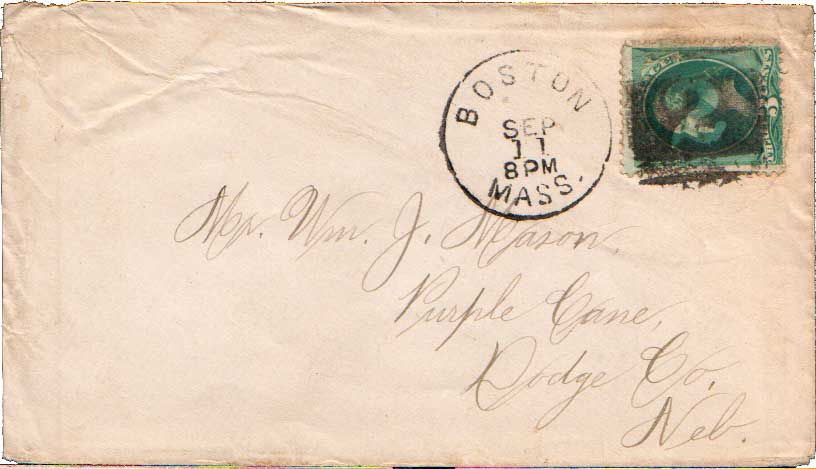 BOSTON
SEP
11
8PM
MASS.
Mr. Wm. J. Mason,
Purple Cane,
Dodge Co,
Neb.